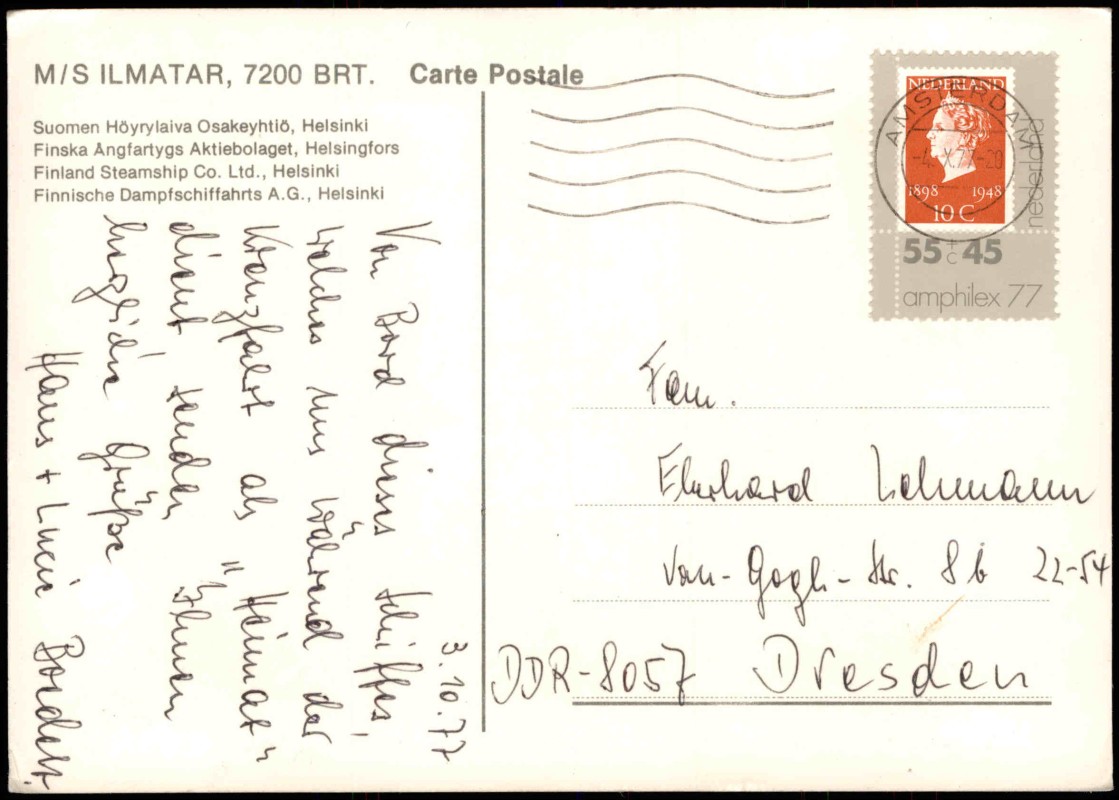 M/S ILMATAR, 7200 BRT.
Carte Postale
Suomen Höyrylaiva Osakeyhtiö, Helsinki
Finska Ångfartygs Aktiebolaget, Helsingfors
Finland Steamship Co. Ltd., Helsinki
Finnische Dampfschiffahrts A.G., Helsinki
3.10.77
Von Bord dieses Schiffes,
welches uns während der
Kreuzfahrt als "Heimat"
dient senden Ihnen
herzliche Grüße
Hans + Lucie
NEDERLAND
1898 1948
10 C
nederland
55 + c 45
amphilex 77
AMSTERDAM
-4.X.77-20
Fam.
Eberhard Lehmann
Van-Gogh-Str. 8b 22-54
DDR-8057 Dresden